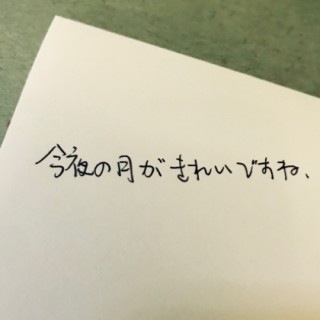 今夜の月がきれいですね、